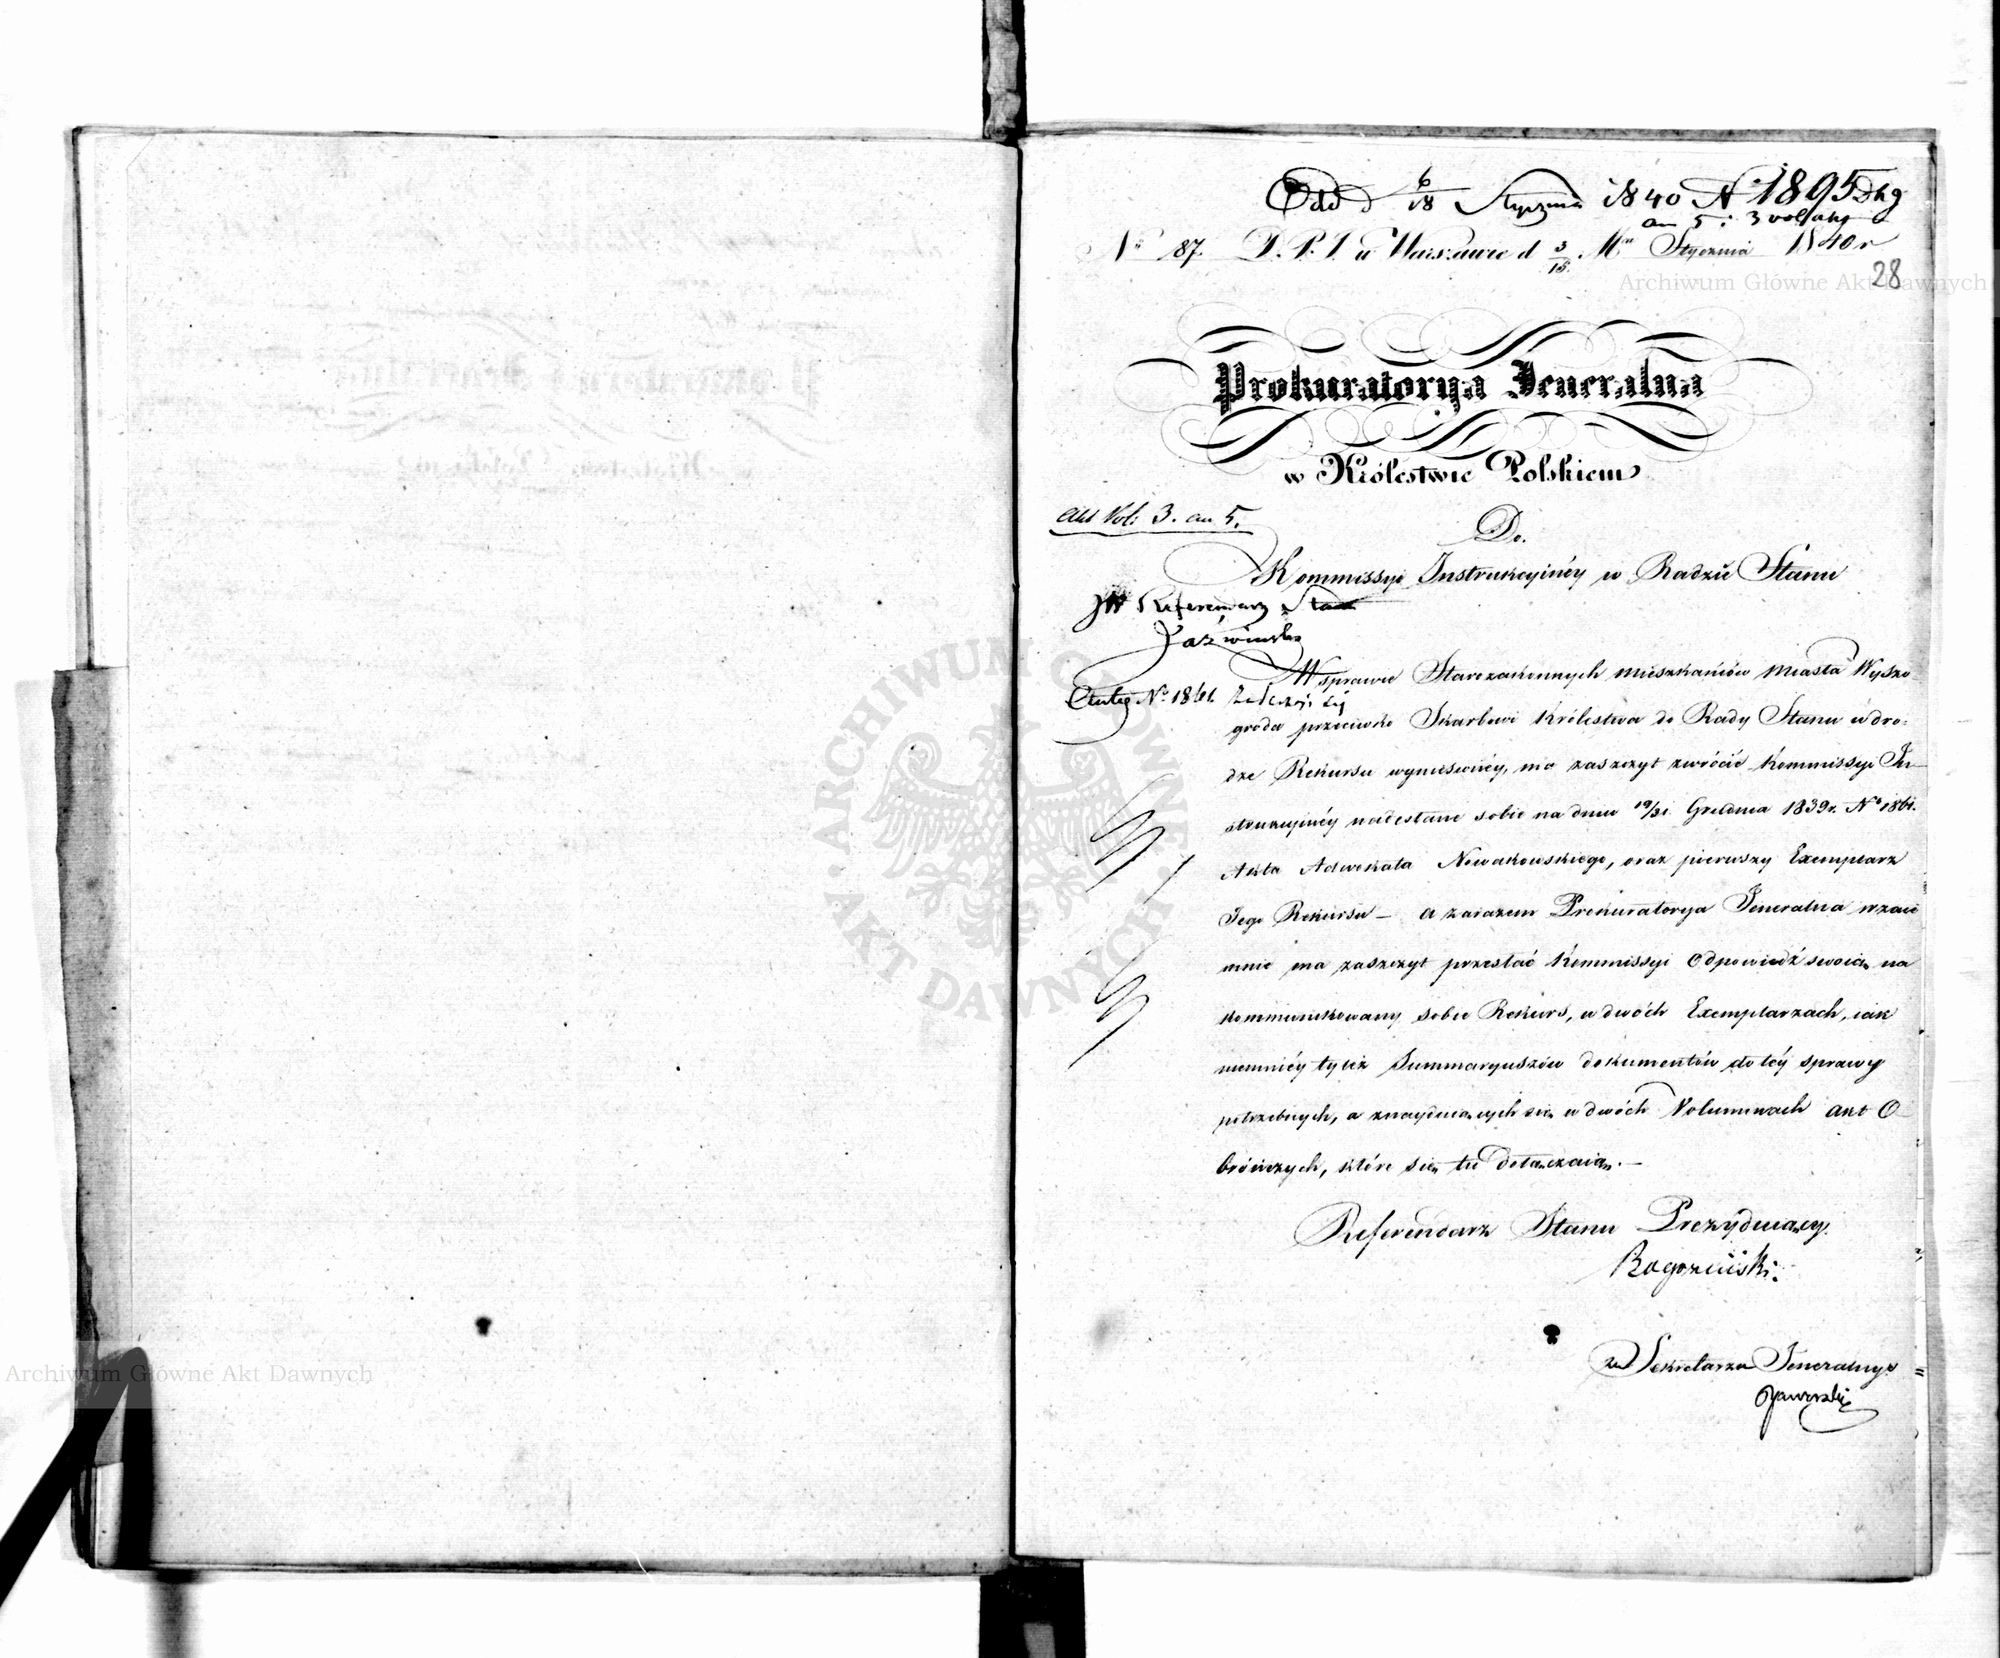 Odd d 6/18 Stycznia 1840 N 1895 Dkg
an 5 i 3 vol akt
No 87. D. P. I. w Warszawie d 3/15. Mca Stycznia 1840 r
28
Prokuratorya Jeneralna
w Królestwie Polskiem
akt Vol: 3. an 5.
Do.
Kommissyi Instrukcyinéy w Radzie Stanu
JW Referendarz Stanu
Jaźwiński
W sprawie Starozakonnych mieszkańców miasta Wyszo-
No 1861.
groda przeciwko Skarbowi Królestwa do Rady Stanu w dro-
dze Rekursu wyniesionéy, ma zaszczyt zwrócić Kommissyi In-
strukcyinéy nadesłane sobie na dniu 19/31 Grudnia 1839 r. No 1861.
Akta Adwokata Nowakowskiego, oraz pierwszy Exemplarz
Jego Rekursu — a zarazem Prokuratorya Jeneralna wzaie
mnie ma zaszczyt przesłać Kommissyi Odpowiedź swoią na
kommunikowany sobie Rekurs, w dwóch Exemplarzach, iak
niemniéy tyleż Summaryuszów dokumentów do téy sprawy
potrzebnych, a znayduiących się w dwóch Voluminach akt O-
brończych, które się tu dołączaią. —
Referendarz Stanu Prezyduiący.
za Sekretarza Jeneralnego
Archiwum Główne Akt Dawnych
ARCHIWUM GŁÓWNE AKT DAWNYCH
Archiwum Główne Akt Dawnych